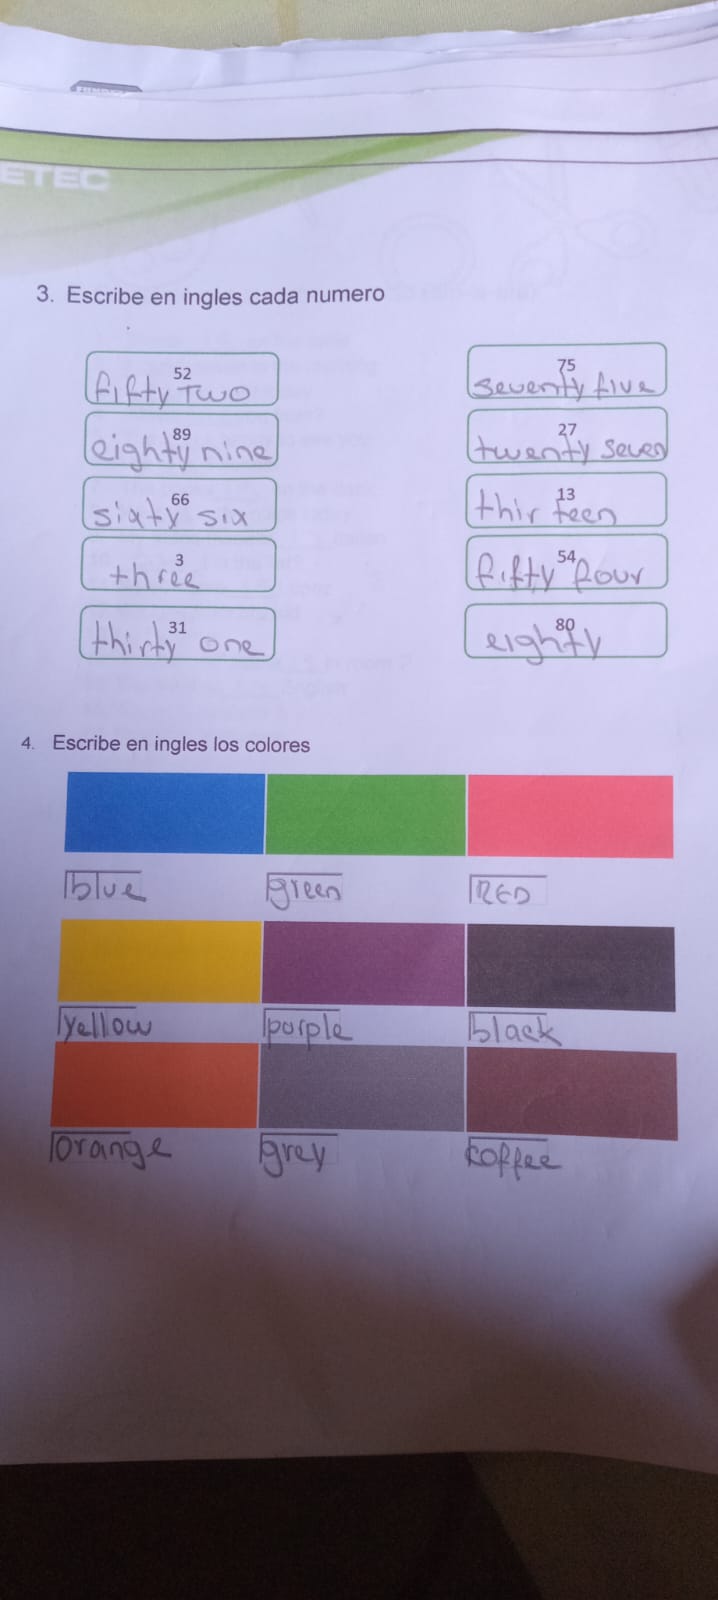 ETEC
3. Escribe en ingles cada numero
52
fifty Two
75
seventy five
89
eighty nine
27
twenty seven
66
sixty six
13
thir teen
3
three
54
fifty four
31
thirty one
80
eighty
4. Escribe en ingles los colores
blue green RED
yellow purple black
orange grey coffee